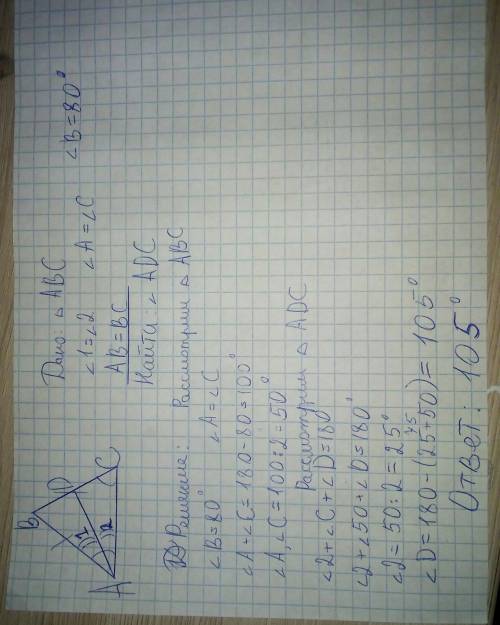 Дано: △ ABC
∠1=∠2 ∠A=∠C ∠B=80°
AB=BC
Найти: ∠ ADC
B
D
1
2
A
C
Решение: Рассмотрим △ ABC
∠B=80° ∠A=∠C
∠A+∠C=180-80=100°
∠A,∠C=100:2=50°
Рассмотрим △ ADC
∠2+∠C+∠D=180°
∠2+∠50+∠D=180°
∠2=50:2=25°
∠D=180-(25+50)=105°
75
Ответ: 105°